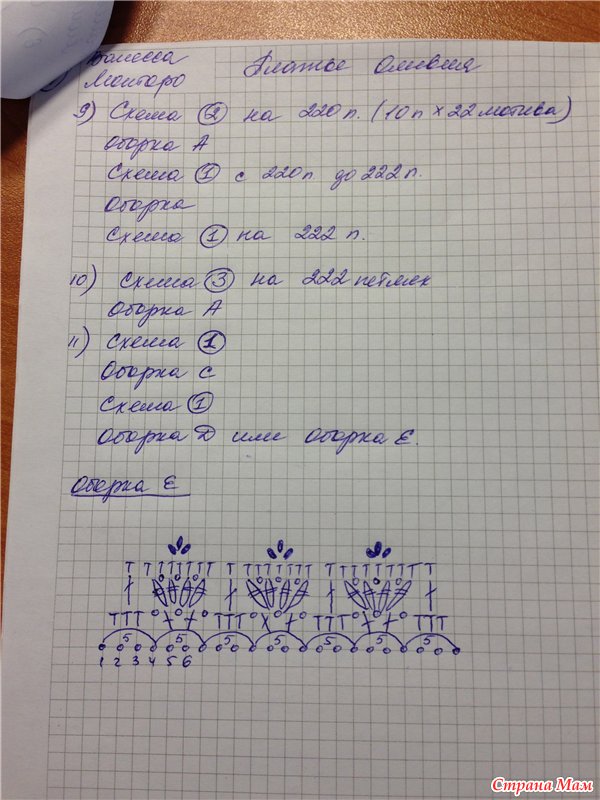 Ванесса
Монторо
Платье Оливия
9) Схема 2 на 220 п. (10 п × 22 мотива)
Оборка А
Схема 1 с 220 п. до 222 п.
Оборка
Схема 1 на 222 п.
10) Схема 3 на 222 петлях
Оборка А
11) Схема 1
Оборка С
Схема 1
Оборка D или Оборка Е.
Оборка Е
5 5 5 5 5 5 5
1 2 3 4 5 6
Страна Мам